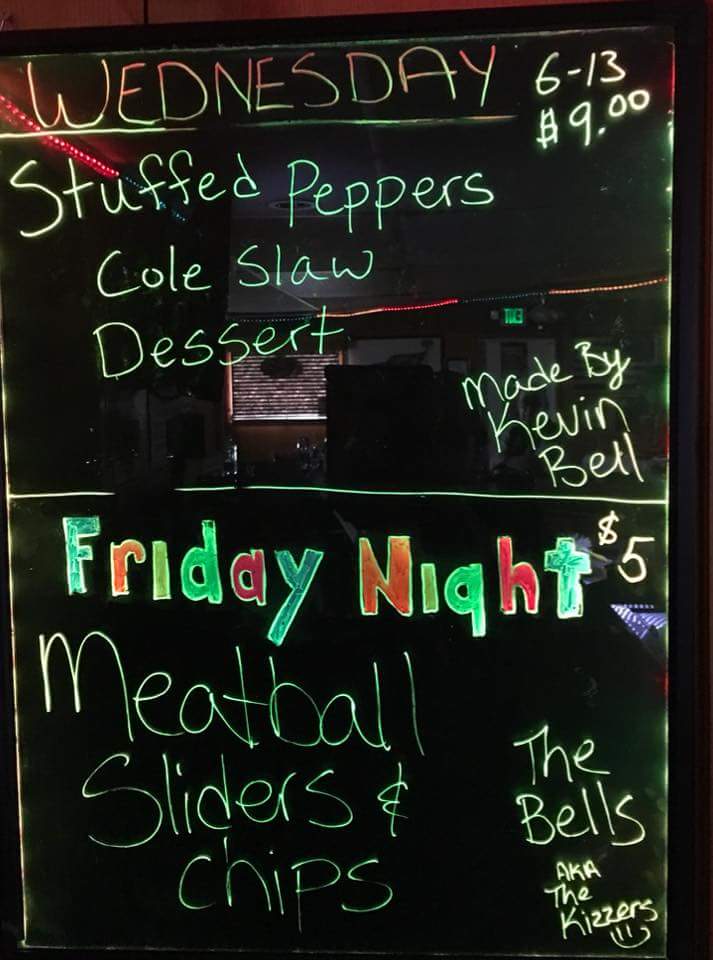 WEDNESDAY 6-13
$9.00
Stuffed Peppers
Cole Slaw
Dessert
Made By
Kevin
Bell
Friday Night $5
Meatball
Sliders &
chips
The
Bells
AKA
The
Kizzers